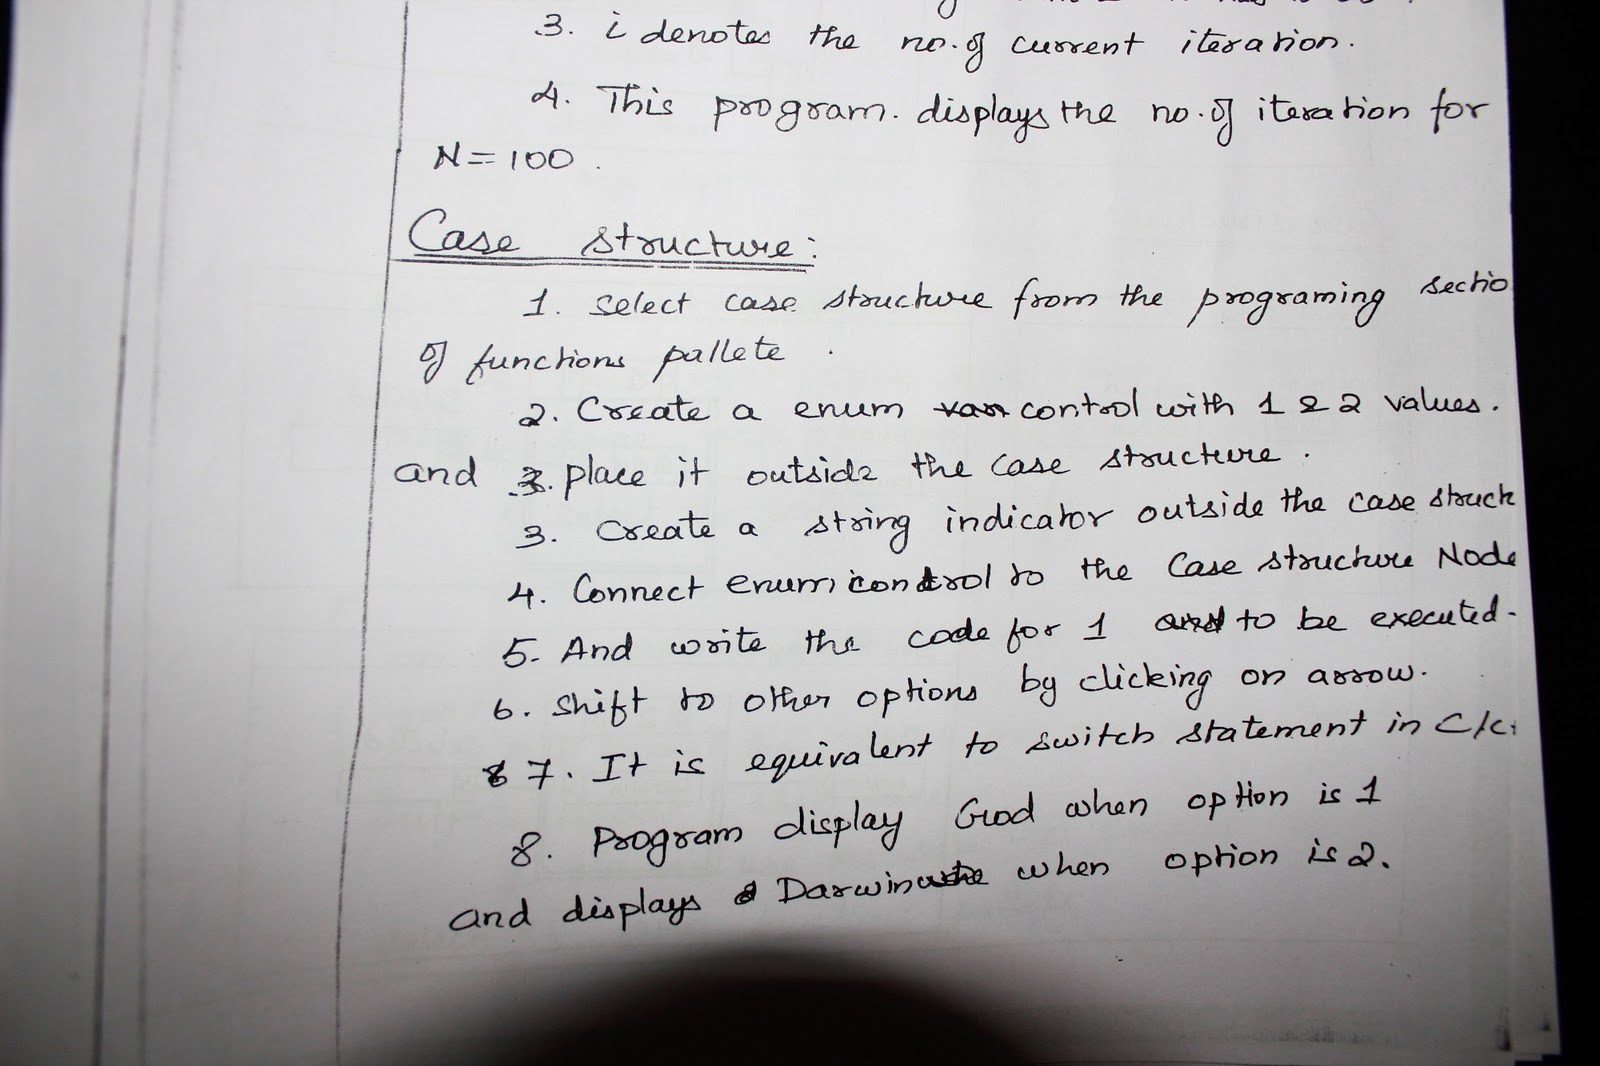 3. i denotes the no. of current iteration.
4. This program. displays the no. of iteration for
N = 100 .
Case structure:
1. select case structure from the programing sectio
of functions pallete .
2. Create a enum control with 1 & 2 values.
and place it outside the case structure .
3. Create a string indicator outside the case struct
4. Connect enum control to the Case structure Node
5. And write the code for 1 to be executed.
6. shift to other options by clicking on arrow.
7. It is equivalent to switch statement in C/C
8. Program display God when option is 1
and displays Darwin when option is 2.